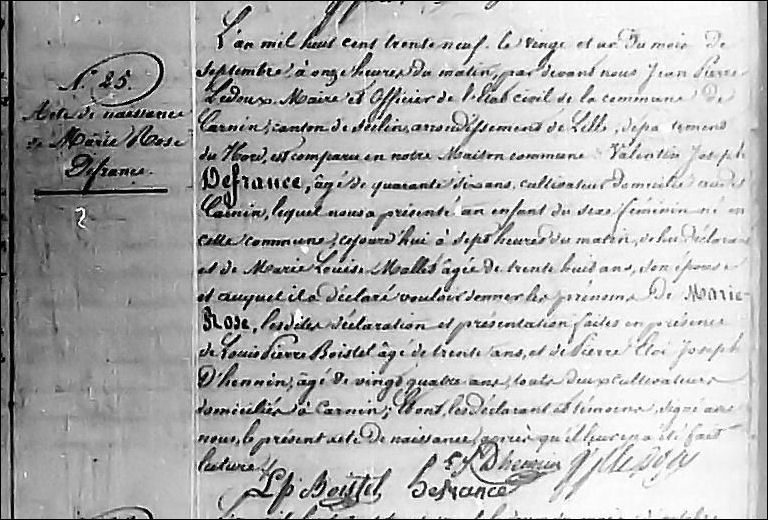 N.° 25.
Acte de naissance
de Marie Rose
Defrance.
L'an mil huit cent trente neuf le vingt et un du mois de
Septembre à onze heures du matin, par devant nous Jean Pierre
Ledoux, Maire et Officier de l'Etat civil de la commune de
Carnin, canton de Seclin, arrondissement de Lille, département
du Nord, est comparu en notre Maison commune Valentin Joseph
Defrance, âgé de quarante six ans, cultivateur domicilié audit
Carnin, lequel nous a présenté un enfant du sexe féminin né en
cette commune, cejourd'hui à sept heures du matin, de lui déclarant
et de Marie Louise Mallet âgée de trente huit ans, son épouse
et auquel il a déclaré vouloir donner les prénoms de Marie
Rose, lesdites déclaration et présentation faites en présence
de Louis Pierre Boistel âgé de trente ans, et de Pierre Eloi Joseph
D'hennin, âgé de vingt quatre ans, touts deux cultivateurs
domiciliés à Carnin; Et ont, les déclarant et témoins signé avec
nous, le présent acte de naissance, après qu'il leur en a été fait
lecture.
Dhennin
Lp Boistel Defrance